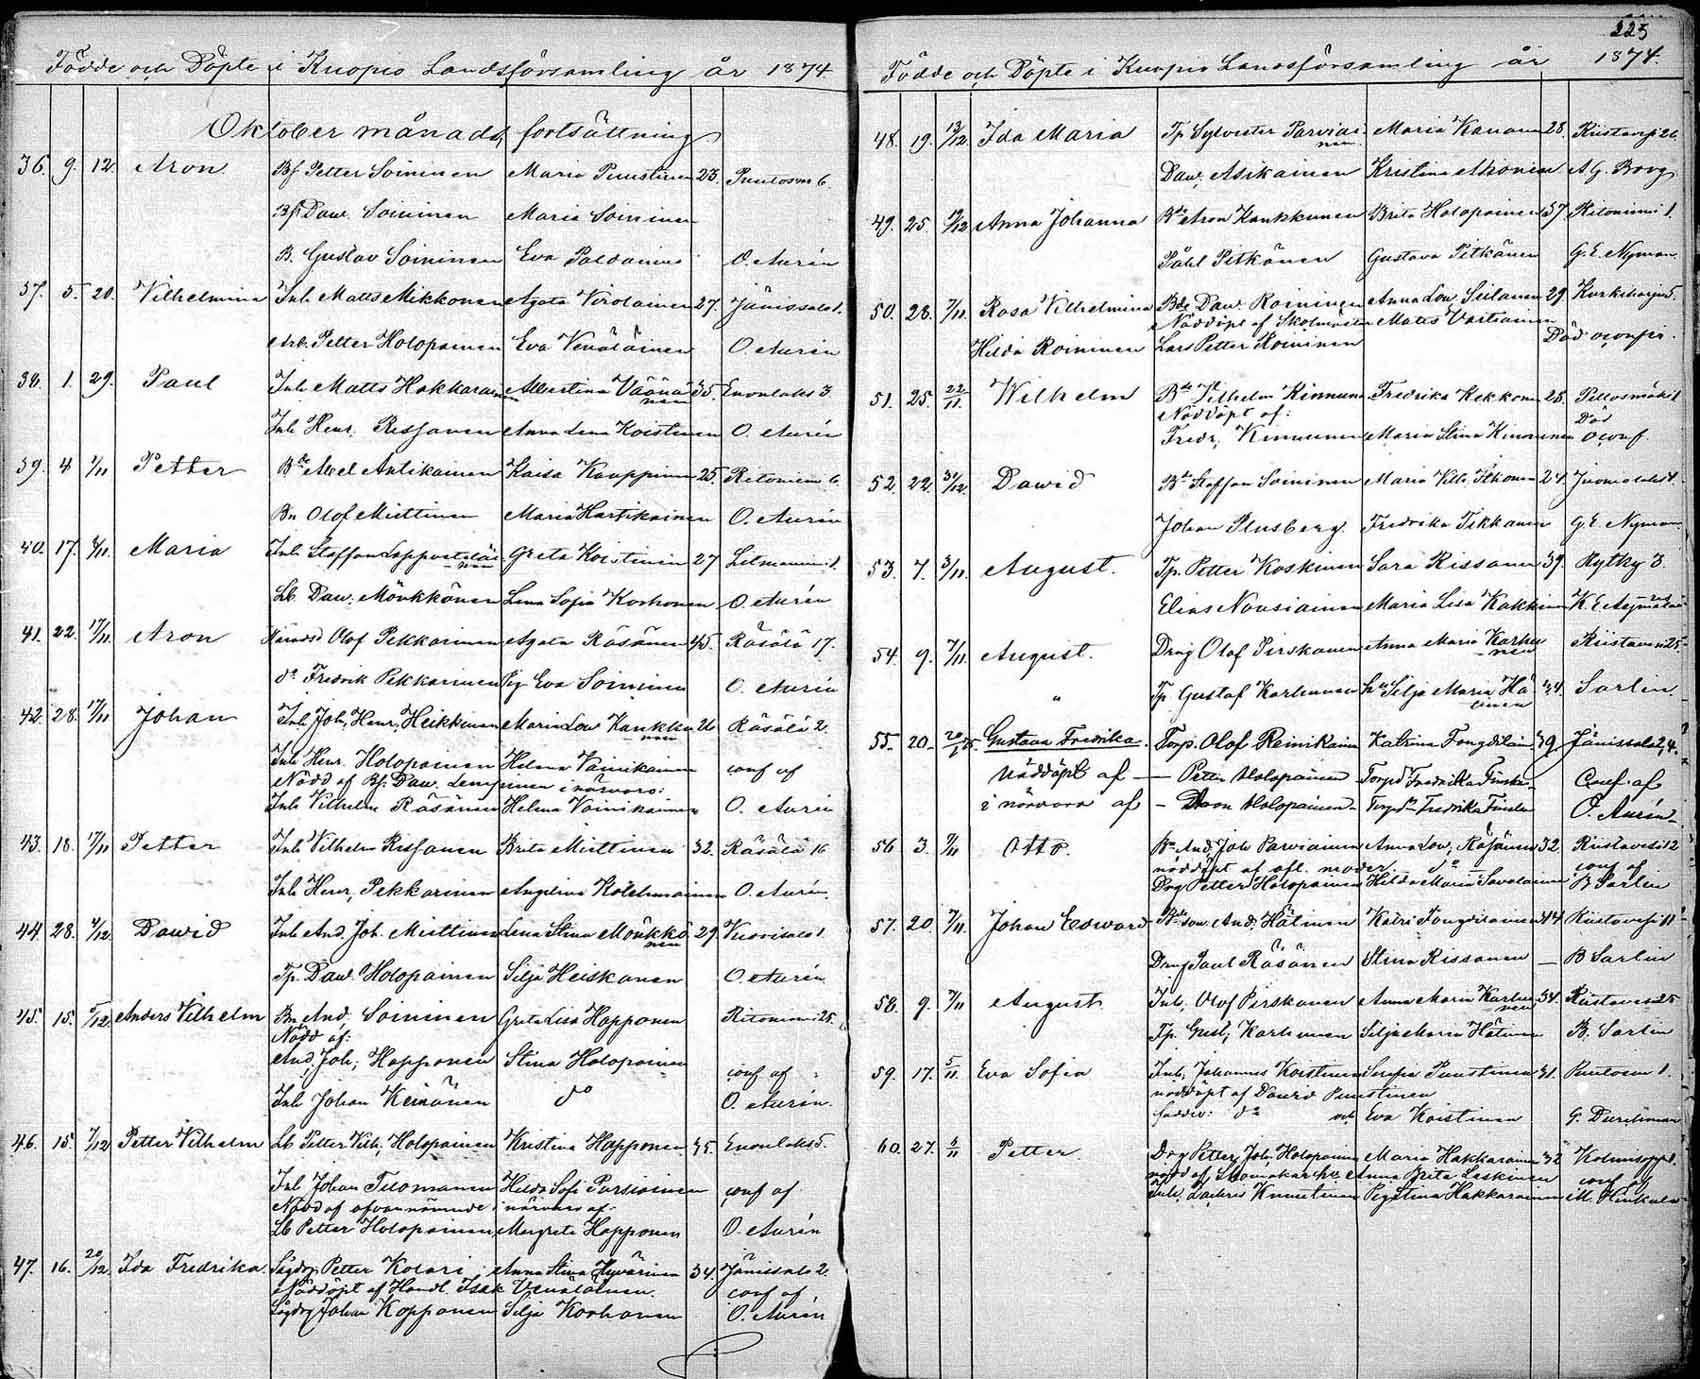 Födde och Döpte i Kuopio Landsförsamling år 1874
Oktober månads fortsättning
36. 9. 12. Aron. Bf Petter Soininen Maria Puustinen 23. Puutosm 6.
Bf Daw. Soininen Maria Soininen
B. Gustav Soininen Eva Paldanius O. Aurén
37. 5. 20. Vilhelmina Inh. Matts Mikkonen Agata Virolainen 27. Jänissalo 1.
Arb. Petter Holopainen Eva Venäläinen O. Aurén
38. 1. 29. Paul Inh Matts Hakkarainen Albertina Väänänen 35. Enonlaks 3
Inh Henr. Rissanen Anna Lena Koistinen O. Aurén
39. 4 1/11 Petter Bde Axel Antikainen Kaisa Kauppinen 25. Ritoniemi 6.
Bn Olof Miettinen Maria Hartikainen O. Aurén
40. 17. 8/11. Maria Inh Staffan Lappveteläinen Greta Koistinen 27 Litmaniemi 1.
Lb. Daw. Mönkkönen Lena Sofia Korhonen O. Aurén
41. 22. 17/11. Aron Olof Pekkarinen Agata Räsänen 45. Räsälä 17.
do Fredrik Pekkarinen Pig Eva Soininen O. Aurén
42. 28. 17/11 Johan Inh Joh. Henr. Heikkinen Maria Lov Kaukkunen 26 Räsälä 2.
Inh Henr. Holopainen Helena Vainikainen conf af
Nödd af Bf. Daw. i närvaro:
Inh Vilhelm Räsänen Helena Vainikainen O. Aurén
43. 18. 17/11 Petter Inh Vilhelm Rissanen Brita Miettinen 32. Räsälä 16
Inh Henr. Pekkarinen Angelina Kolehmainen O. Aurén.
44. 28. 4/12. Dawid Inh And. Joh. Miettinen Lena Stina Mönkkönen 29. Vuorisalo 1.
Tp. Daw. Holopainen Silja Heiskanen O. Aurén.
45. 15. 5/12. Anders Vilhelm Bn And. Soininen Greta Lisa Happonen Ritoniemi 25.
Nödd af:
And. Joh. Happonen Stina Holopainen conf af
Inh Johan Keinänen do O. Aurén.
46. 15 7/12 Petter Vilhelm Lb Petter Vilh. Holopainen Kristina Happonen 35. Enonlaks 5.
Inh Johan Tuomanen Hilda Sofi Parsiainen conf af
Nödd af ofvannämnde i närvaro af.
Lb Petter Holopainen, Margreta Happonen O. Aurén
47. 16. 20/12. Ida Fredrika. Petter Kolari Anna Stina Hyvärinen 34. Jänissalo 2.
Nöddöpt af Handl. Isak Venäläinen. conf af
Johan Kopponen Silja Korhonen O. Aurén
225
Födde och Döpte i Kuopio Landsförsamling år 1874.
48. 19. 13/12. Ida Maria Tp Sylvester Parviainen Maria Kananen 28. Riistavesi 26
Daw. Asikainen Kristina Ahonen A G. Borg
49. 25. /12 Anna Johanna Bde Aron Kaukkunen Brita Holopainen 37. Ritoniemi 1.
Påhl Pitkänen Gustava Pitkänen G. E. Nyman.
50. 28. 7/11. Rosa Vilhelmina Bde Daw. Roininen Anna Lov. Siilanen 29. Kurkiharju 5.
Nöddöpt af Skolmästar Matts Vartiainen
Hilda Roininen Lars Petter Roininen Död oconfir.
51. 25. 22/11. Wilhelm Bde Vilhelm Kinnunen Fredrika Kekkonen 28. Pellosmäki 1
Nöddöpt af: Död
Fredr. Kinnunen Maria Stina Kinnunen oconf.
52. 22. 31/12. Dawid Bde Staffan Soininen Maria Vilh. Ikonen 24. Juonionlaks 4.
Johan Plusberg. Fredrika Tikkanen G. E. Nyman.
53. 7. 3/11. August. Tp. Petter Koskinen Sara Rissanen 39. Rytky 3.
Elias Nousiainen Maria Lisa Kakkinen K. E.
54. 9. 7/11. August. Drg Olof Pirskanen Anna Maria Karhunen Riistavesi 25.
" Tp. Gustaf Karhunen hu Silja Maria Hätinen 34. Sarlin
55. 20. 20/1 75. Gustava Fredrika. Torp. Olof Reinikainen Katrina Tengdilain 39 Jänissalo 2, 4.
Nöddöpt af — Petter Holopainen Torpd Fredrika Conf af
i närvaro af — Aron Holopainen Fredrika O. Aurén
56 3. 7/11 Otto. Bn And. Joh. Parviainen Anna Lov. Räsänen 32. Riistavesi 12
nöddöpt af afl. moder do conf af
Drg Petter Holopainen Hilda Maria Savolainen B Sarlin
57. 20. 7/11. Johan Edward And. Hätinen Katri Tengdilainen 44. Riistavesi 11
Drng Paul Räsänen Stina Rissanen — B Sarlin
58. 9. 7/11 August Inh. Olof Pirskanen Anna Maria Karhunen 34. Riistavesi 25
Tp. Gust. Karhunen Silja Maria Hätinen B. Sarlin
59. 17. 5/11 Eva Sofia Inh. Johannes Koistinen Serafia Puustinen 31. Puutosm 1.
nöddöpt af Dawid Puustinen
faddr: do och Eva Koistinen G.
60. 27. 6/11 Petter. Drg Petter Joh. Holopainen Maria Hakkarainen 32 Kolmisopp 1.
nödd af Anna Brita Laskinen conf af
Inh. Zachris Knuutinen Pig Stina Hakkarainen M.